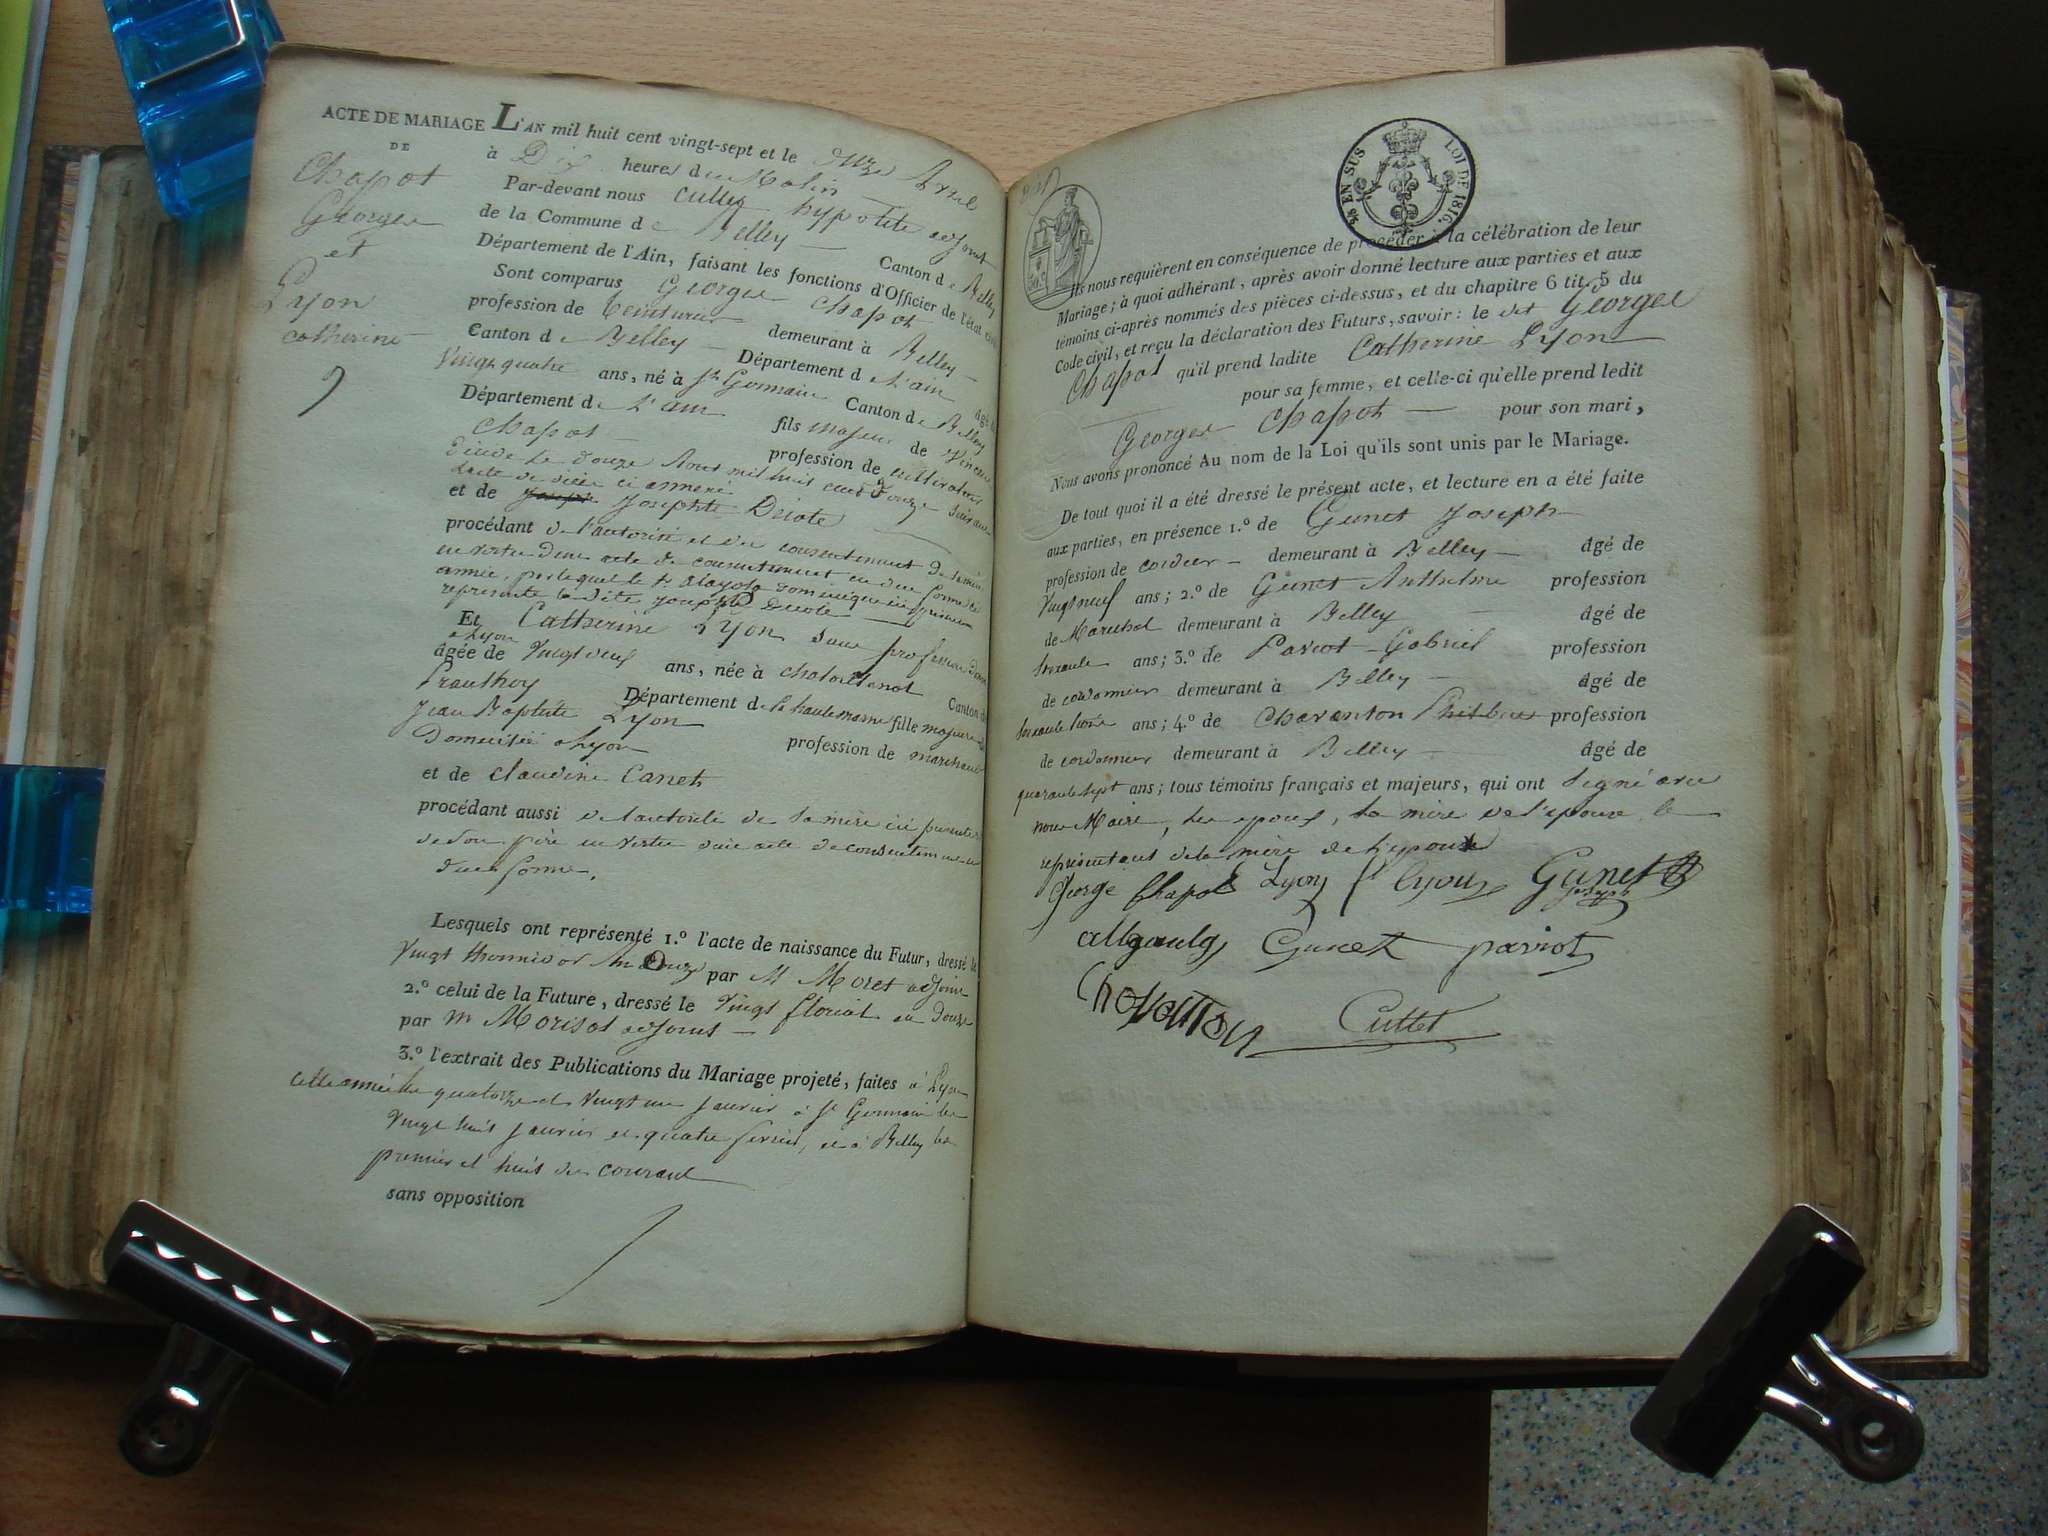 ACTE DE MARIAGE
DE
Chapot
George
et
Lyon
Catherine
L'AN mil huit cent vingt-sept et le onze Avril
à Dix heures du Matin
Par-devant nous Cullet hypolite adjoint
de la Commune de Belley Canton de Belley
Département de l'Ain, faisant les fonctions d'Officier de l'état civil
Sont comparus George Chapot
profession de teinturier demeurant à Belley
Canton de Belley Département de l'ain âgé de
vingt quatre ans, né à St Germain Canton de Belley
Département de L'ain fils majeur de Vincent
Chapot profession de cultivateur
décédé le douze Aout mil huit cent douze suivant
l'acte de décès ci annexé
et de Josephte Driote
procédant de l'autorité et du consentement de sa mère
en vertu d'une acte de consentement en due forme
année, par lequel le Sr dominique
représente la dite Josephte Driote
Et Catherine Lyon sans profession
à Lyon
âgée de vingt deux ans, née à chatoillenot Canton de
Prauthoy Département de la haute marne fille majeure de
Jean Baptiste Lyon profession de marchand
Domicilié a Lyon
et de claudine Canet
procédant aussi de l'autorité de sa mère ici présente et
de son père en vertu d'une acte de consentement en
due forme.
Lesquels ont représenté 1.º l'acte de naissance du Futur, dressé le
vingt thermidor an Douze par M Moret adjoint
2.º celui de la Future, dressé le vingt floréal an douze
par M Morisot adjoint
3.º l'extrait des Publications du Mariage projeté, faites à Lyon
cette année les quatorze et vingt un janvier à St Germain les
vingt huit janvier et quatre fevrier, et à Belley les
premier et huit du courant
sans opposition
25 EN SUS LOI DE 1816.
Ils nous requièrent en conséquence de procéder à la célébration de leur
Mariage; à quoi adhérant, après avoir donné lecture aux parties et aux
témoins ci-après nommés des pièces ci-dessus, et du chapitre 6 tit. 5 du
Code civil, et reçu la déclaration des Futurs, savoir: le dit George
Chapot qu'il prend ladite Catherine Lyon
pour sa femme, et celle-ci qu'elle prend ledit
George Chapot pour son mari,
Nous avons prononcé Au nom de la Loi qu'ils sont unis par le Mariage.
De tout quoi il a été dressé le présent acte, et lecture en a été faite
aux parties, en présence 1.º de Gunet Joseph
profession de cordier demeurant à Belley âgé de
vingt neuf ans; 2.º de Gunet Anthelme profession
de Marechal demeurant à Belley âgé de
ans; 3.º de Parriot Gabriel profession
de cordonnier demeurant à Belley âgé de
ans; 4.º de Charanton profession
de cordonnier demeurant à Belley âgé de
quarante sept ans; tous témoins français et majeurs, qui ont signé avec
nous Maire, les epoux, la mère de l'epouse, le
représentant de la mère de l'epoux
George Chapot Lyon Lyon Gunet
Joseph
Gunet parriot
Charanton Cullet